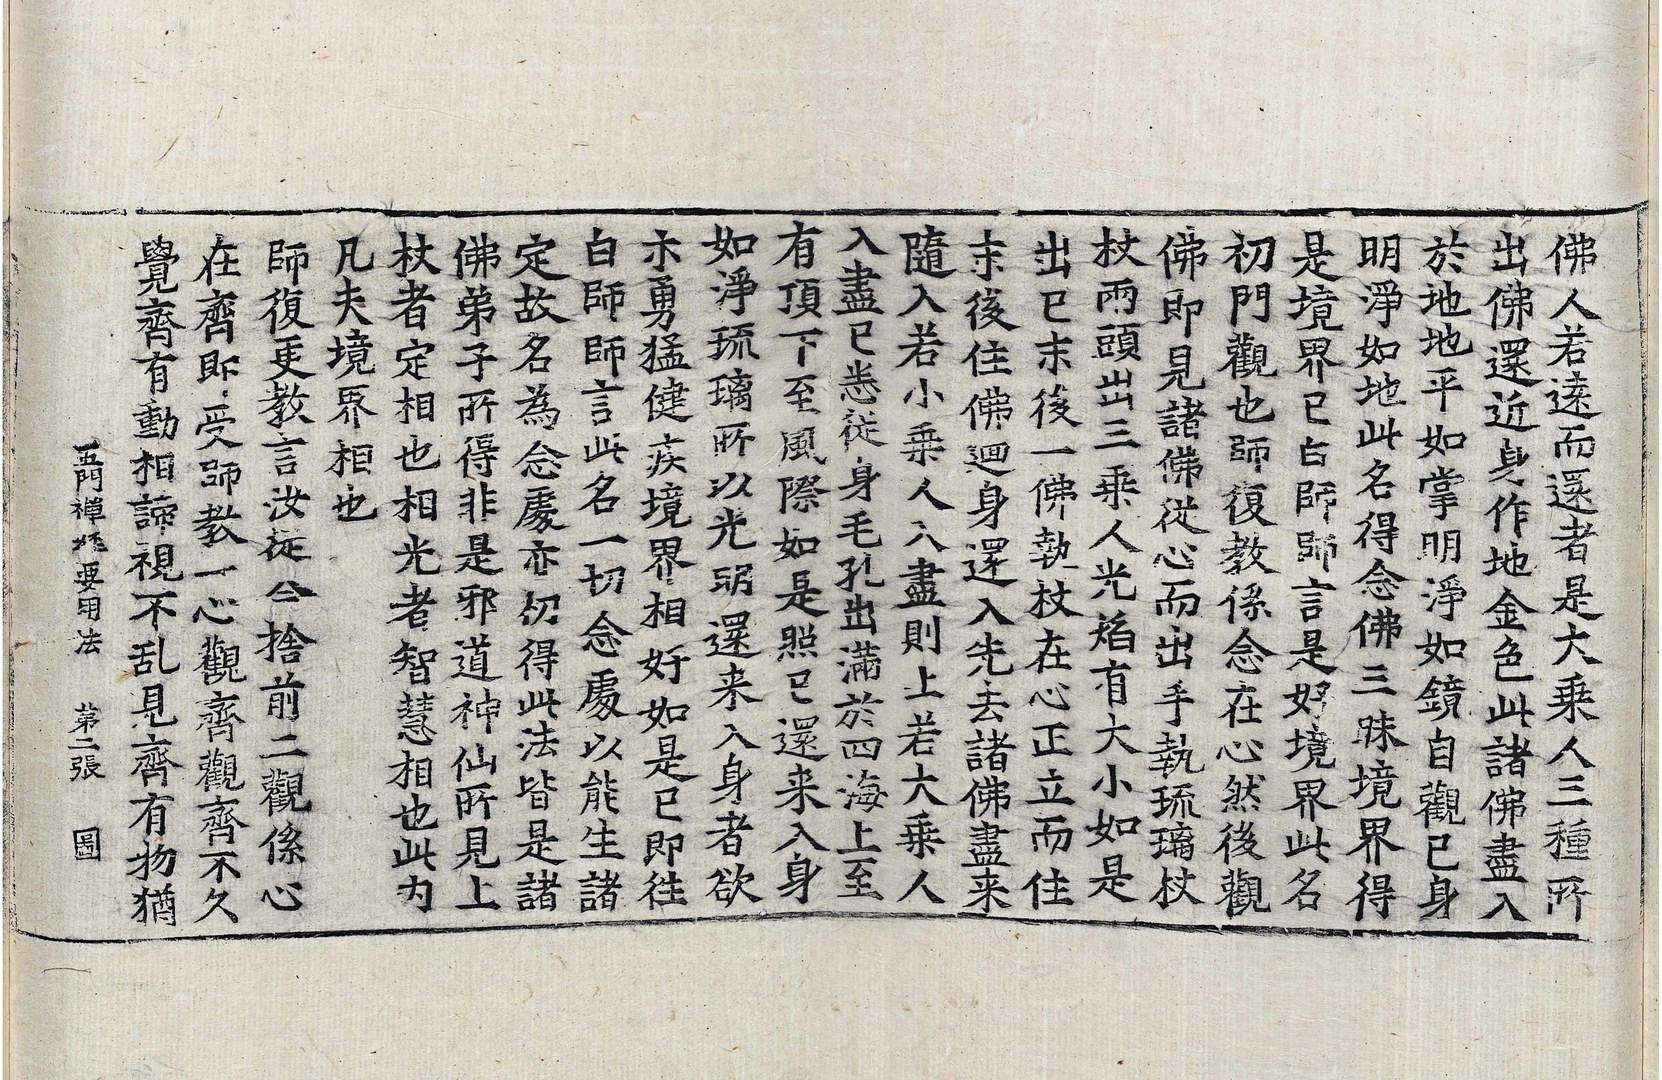 佛人若遠而還者是大乘人三種所
出佛還近身作地金色此諸佛盡入
於地地平如掌明淨如鏡自觀已身
明淨如地此名得念佛三昧境界得
是境界已白師師言是好境界此名
初門觀也師復教係念在心然後觀
佛即見諸佛從心而出手執琉璃杖
杖兩頭出三乘人光焰有大小如是
出已末後一佛執杖在心正立而住
末後住佛迴身還入先去諸佛盡来
隨入若小乘人入盡則上若大乘人
入盡已悉從身毛孔出滿於四海上至
有頂下至風際如是照已還来入身
如淨琉璃所以光明還来入身者欲
示勇猛健疾境界相好如是已即往
白師師言此名一切念處以能生諸
定故名為念處亦初得此法皆是諸
佛弟子所得非是邪道神仙所見上
杖者定相也相光者智慧相也此內
凡夫境界相也
師復更教言汝從今捨前二觀係心
在齊即受師教一心觀齊觀齊不久
覺齊有動相諦視不乱見齊有物猶
五門禪經要用法　第二張　圖